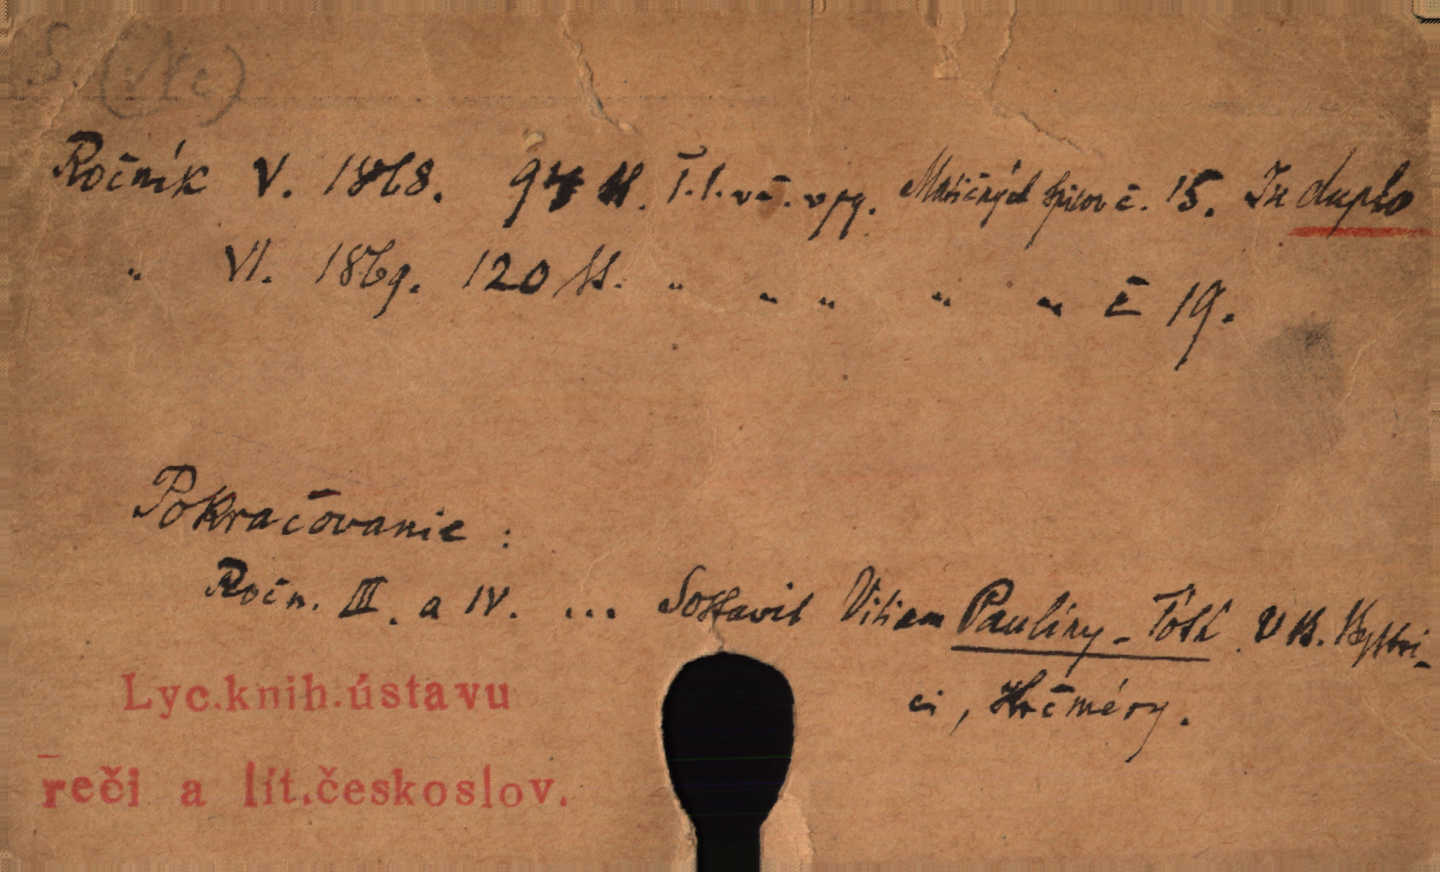 Ročník V. 1868. 94 H. T.l.vč.vpg. Matičných spisov č. 15. In duplo
" VI. 1869. 120 H. " " " " " č 19.
Pokračovanie :
Ročn. III. a IV. ... Sostavil Viliam Pauliny-Tóth. V B. Bystri-
ci,
Lyc.knih.ústavu
reči a lit.českoslov.